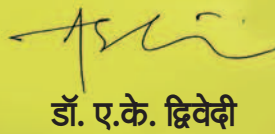 डॉ. ए.के. द्विवेदी